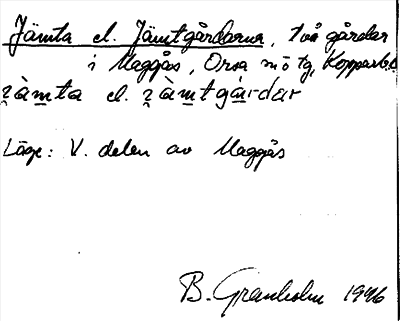 Jämta el. Jämtgårdarna, två gårdar
i Maggås, Orsa sn o tg, Kopparb.
ʒàm̲ta el. ʒàm̲tgårdar
Läge: V. delen av Maggås
B. Granholm 1946